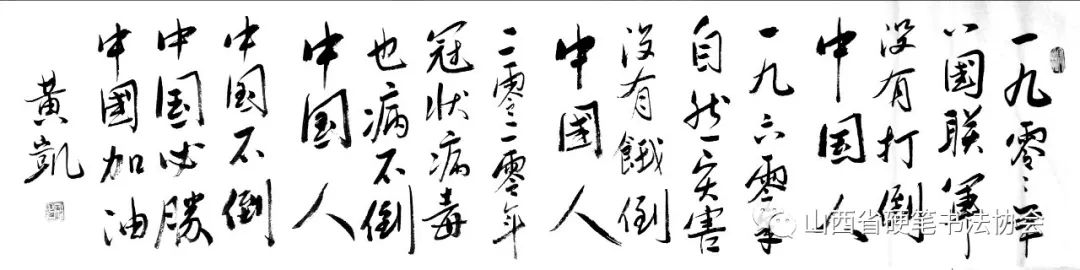 一九零零年
八國联軍
没有打倒
中国人
一九六零年
自然灾害
没有餓倒
中國人
二零二零年
冠状病毒
也病不倒
中国人
中国不倒
中国必勝
中國加油
黃凱
山西省硬笔书法协会